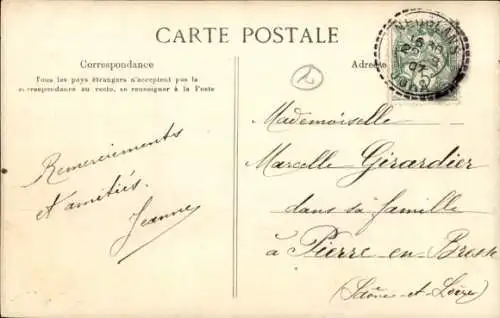 CARTE POSTALE
Correspondance
Tous les pays étrangers n'acceptent pas la
correspondance au recto, se renseigner à la Poste
Remerciements
et amitiés.
Jeanne
Adresse
Mademoiselle
Marcelle Girardier
dans sa famille
à Pierre-en-Bresse
(Saône-et-Loire)